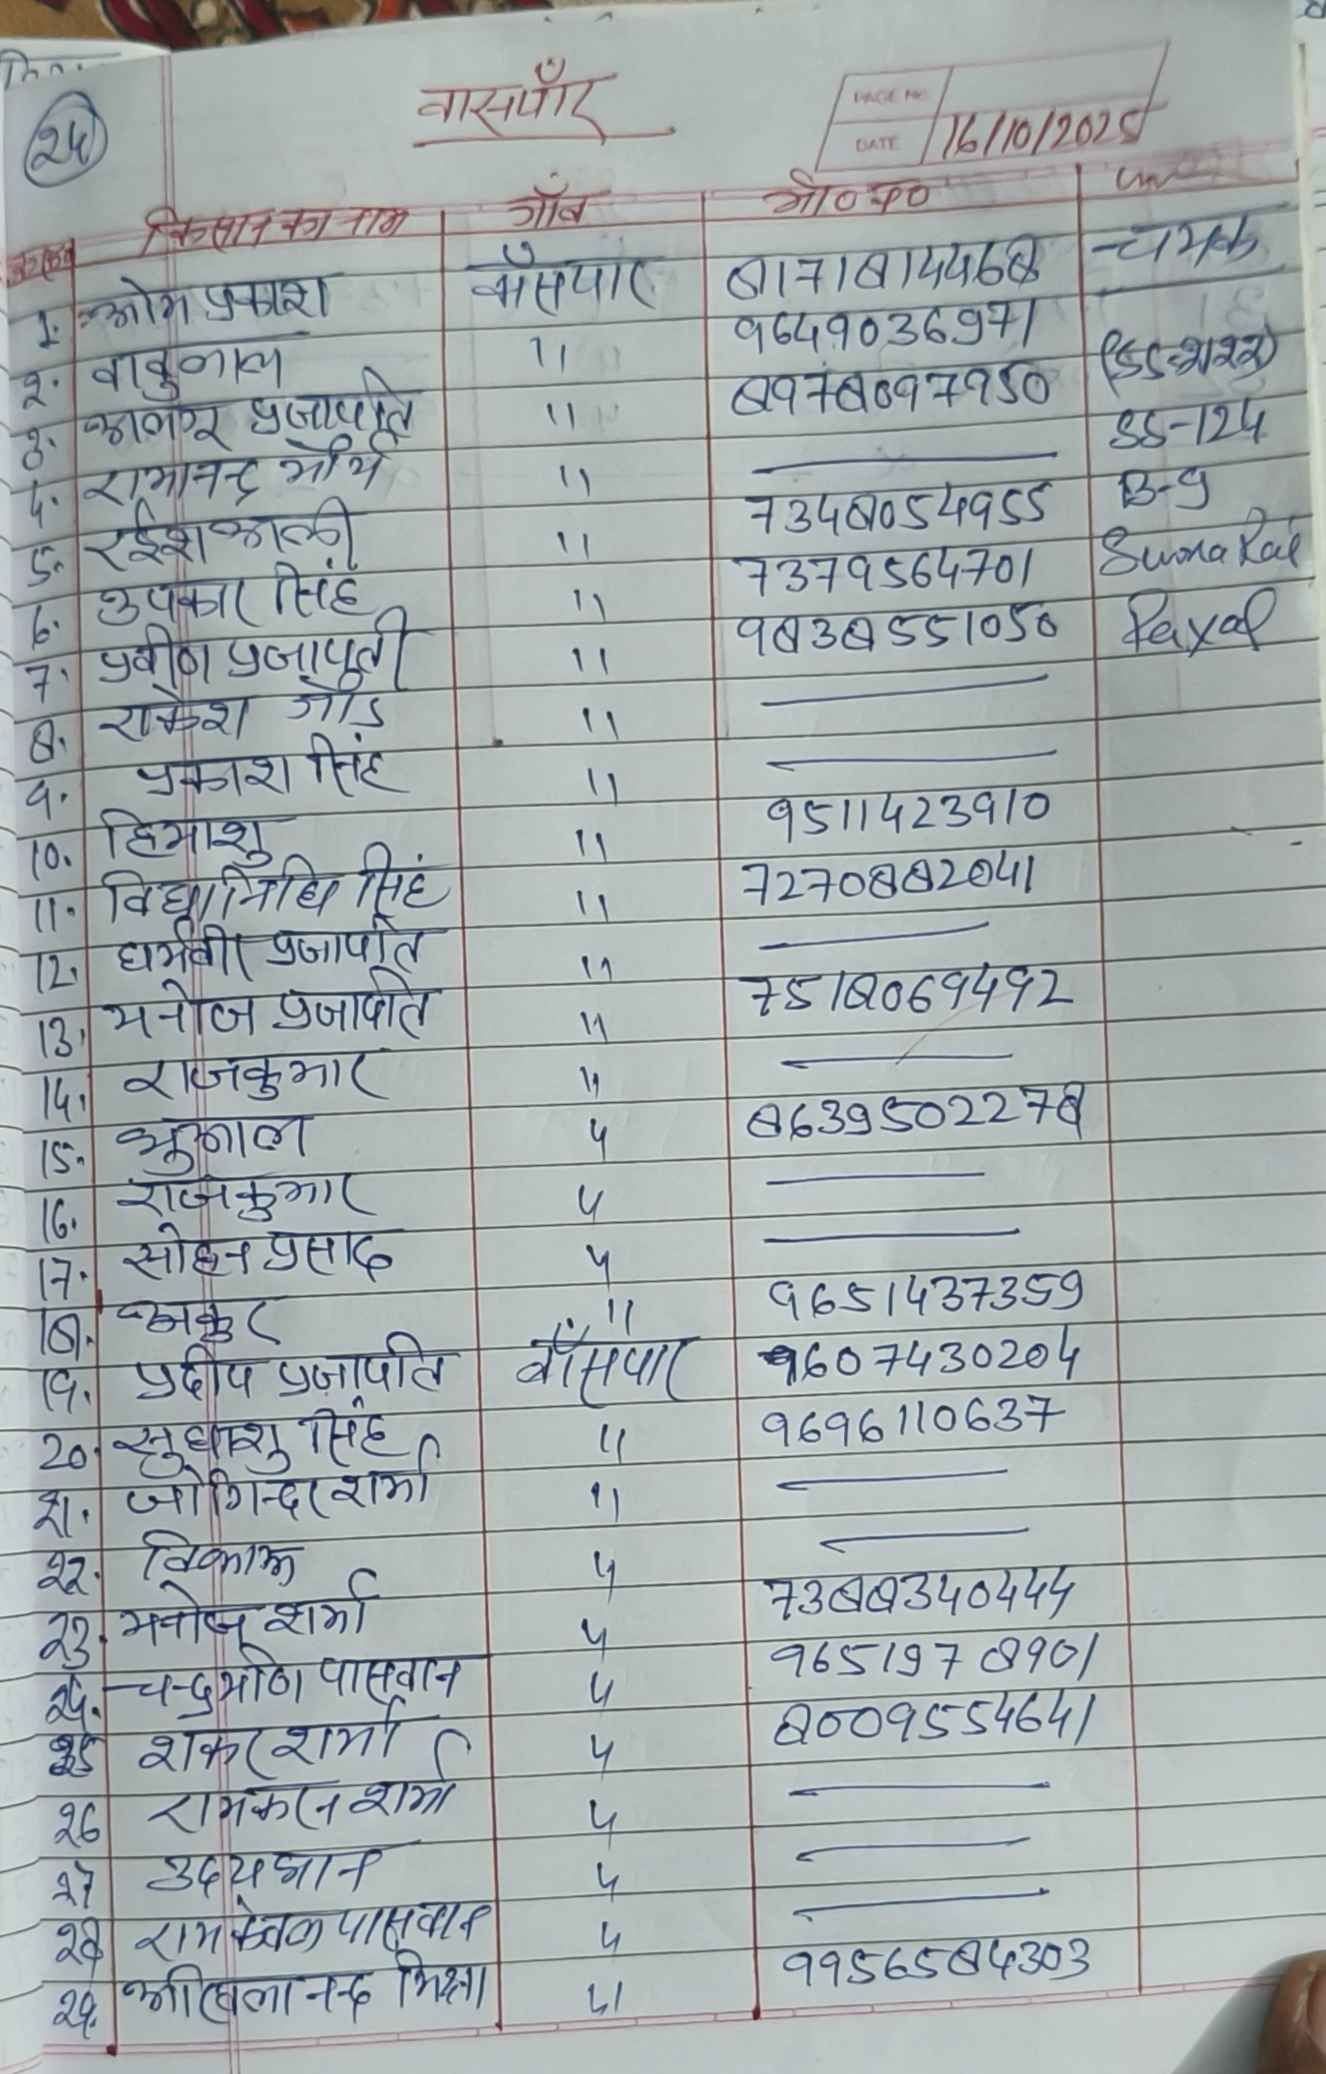 24
वासपाँर
PAGE NO
DATE 16/10/2025
किसान का नाम गाँव मो०न०
1. ओम प्रकाश बाँसपार 8171814468 चमक
2. बाबुलाल 11 9649036971
3. प्रजापति 11 8978097950 (SS-2122)
4. रामानन्द मौर्य 11 —— SS-124
5. रईश अली 11 7348054955 B-9
6. उपकार सिंह 11 7379564701
7. प्रवीण प्रजापती 11 9838551050 Payal
8. राकेश गोंड 11 ——
9. प्रकाश सिंह 11 ——
10. हिमाशु 11 9511423910
11. विद्यानिधि सिंह 11 7270882041
12. धर्मवीर प्रजापति 11 ——
13. मनोज प्रजापति 11 7518069492
14. राजकुमार 11 ——
15. 11 8639502278
16. राजकुमार 11 ——
17. सोहन प्रसाद 11 ——
18. अंकुर 11 9651437359
19. प्रदीप प्रजापति बाँसपार 9607430204
20. सुधाशु सिंह 11 9696110637
21. जोगिन्दर शर्मा 11 ——
22. 11 ——
23. मनोज शर्मा 11 7388340444
24. चन्द्रमणि पासवान 11 9651978901
25 शंकर शर्मा 11 8009554641
26 शर्मा 11 ——
27 उदयभान 11 ——
28 रामकेवल पासवान 11 ——
29. मिश्रा 11 9956584303